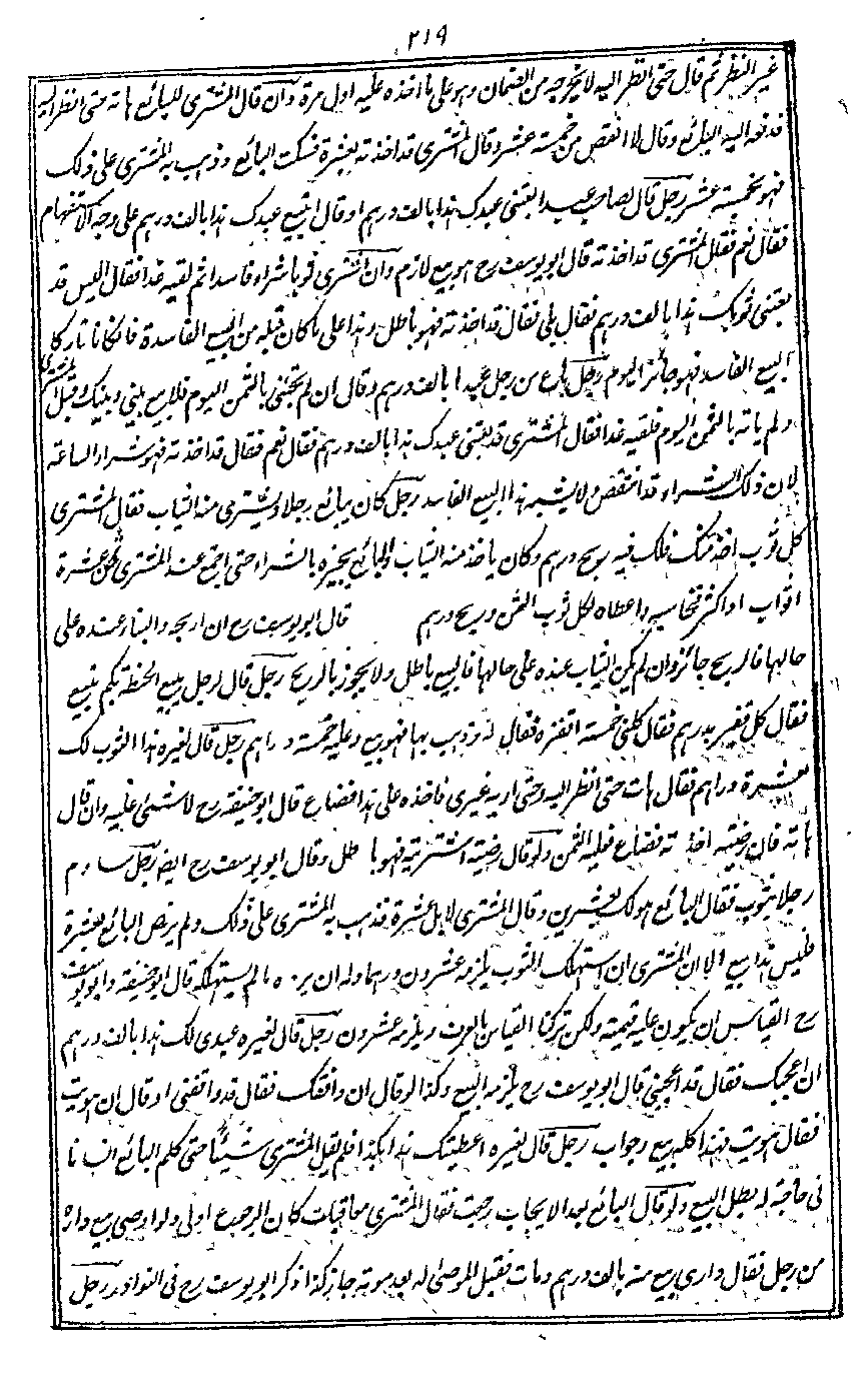 ٢١٩
غير النظر ثم قال حتى انظر اليه لا يخرجه من الضمان وهو على ما اخذه عليه اول مرة وان قال المشترى للبائع هاته حتى انظر اليه
فدفعه اليه البائع وقال لا انقص من خمسة عشر وقال المشترى قد اخذته بعشرة فسكت البائع وذهب به المشترى على ذلك
فهو بخمسة عشر رجل قال لصاحب عبد ابعتنى عبدك هذا بالف درهم او قال اتبيع عبدك هذا بالف درهم على وجه الاستفهام
فقال نعم فقال المشترى قد اخذته قال ابو يوسف رح هو بيع لازم وان اشترى ثوبا شراء فاسدا ثم لقيه غدا فقال اليس قد
بعتنى ثوبك هذا بالف درهم فقال بلى فقال قد اخذته فهو باطل وهذا على ما كان قبله من البيع الفاسدة فان كانا تاركا
البيع الفاسد فهو جائز اليوم رجل باع من رجل عبدا بالف درهم وقال ان لم تجئنى بالثمن اليوم فلا بيع بينى وبينك وقبل المشترى
ولم ياته بالثمن اليوم فلقيه غدا فقال المشترى قد بعتنى عبدك هذا بالف درهم فقال نعم فقال قد اخذته فهو شراء الساعة
لان ذلك الشراء قد انتقض ولا يشبه هذا البيع الفاسد رجل كان يبائع رجلا ويشترى منه الثياب فقال المشترى
كل ثوب اخذ منك فلك فيه ربح درهم وكان ياخذ منه الثياب والبائع يخبره بالشراء حتى اجتمع عند المشترى ثمن عشرة
اثواب او اكثر فحاسبه واعطاه لكل ثوب الثمن وربح درهم قال ابو يوسف رح ان اربحه والثياب عنده على
حالها فالربح جائز وان لم يكن الثياب عنده على حالها فالبيع باطل ولا يجوز بالربح رجل قال لرجل يبيع الحنطة بكم تبيع
فقال كل قفيز بدرهم فقال كلنى خمسة اقفزة فقال له وذهب بها فهو بيع وعليه خمسة دراهم رجل قال لغيره هذا الثوب لك
بعشرة دراهم فقال هات حتى انظر اليه وحتى اريه غيرى فاخذه على هذا فضاع قال ابو حنيفة رح لا شىء عليه وان قال
هاته فان رضيته اخذته فضاع فعليه الثمن ولو قال رضيته اشتريته فهو باطل وقال ابو يوسف رح ايضا رجل ساوم
رجلا بثوب فقال البائع هو لك بعشرين وقال المشترى لا بل عشرة فذهب به المشترى على ذلك ولم يرض البائع بعشرة
فليس هذا ببيع الا ان المشترى ان استهلك الثوب يلزمه عشرون درهما وله ان يرده ما لم يستهلكه قال ابو حنيفة وابو يوسف
رح القياس ان يكون عليه قيمته ولكن تركنا القياس بالعرف ويلزمه عشرون رجل قال لغيره عبدى لك هذا بالف درهم
ان اعجبك فقال قد اعجبنى قال ابو يوسف رح يلزمه البيع وكذا لو قال ان وافقك فقال قد وافقنى او قال ان هويت
فقال هويت فهذا كله بيع وجواب رجل قال لغيره اعطيتك هذا بكذا فلم يقل المشترى شيئا حتى كلم البائع انسانا
فى حاجة له بطل البيع ولو قال البائع بعد الايجاب رجعت فقال المشترى معا قبلت كان الرجوع اولى ولو اوصى ببيع داره
من رجل فقال دارى بيع منه بالف درهم ومات فقبل الموصى له بعد موته جاز كذا ذكر ابو يوسف رح فى النوادر رجل